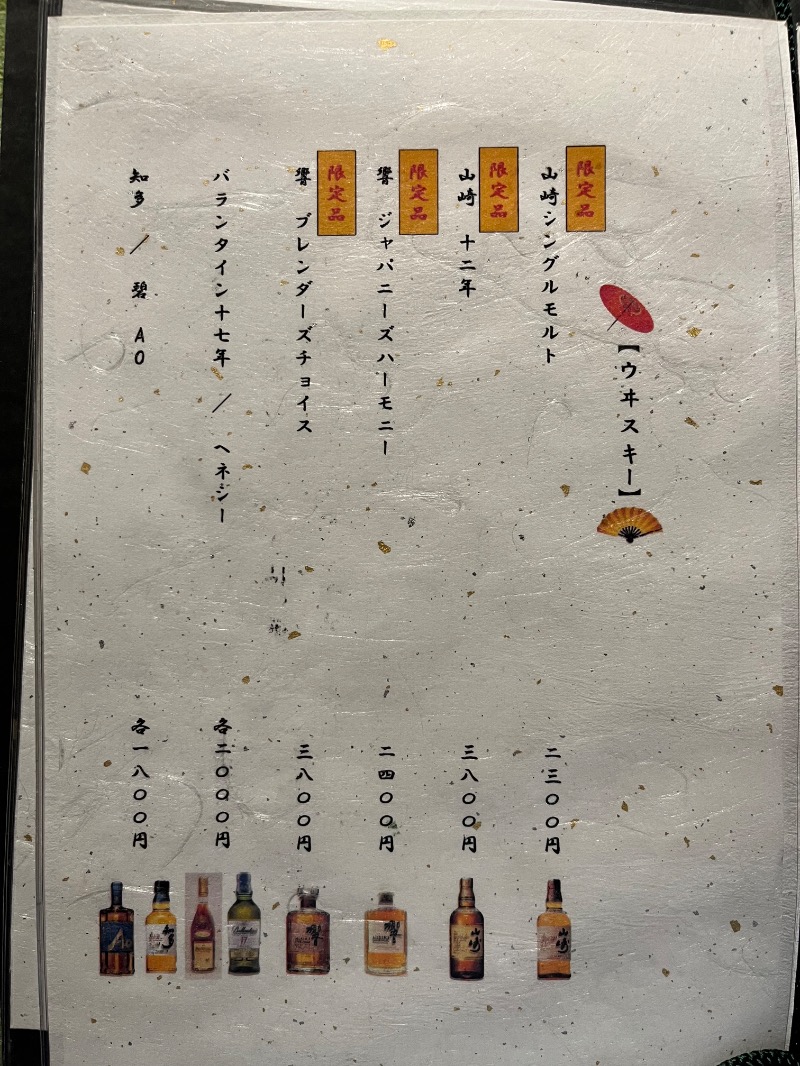 【ウヰスキー】
限定品
山崎シングルモルト 二三〇〇円
限定品
山崎 十二年 三八〇〇円
限定品
響 ジャパニーズハーモニー 二四〇〇円
限定品
響 ブレンダーズチョイス 三八〇〇円
バランタイン十七年 / ヘネシー 各二〇〇〇円
知多 / 碧 AO 各一八〇〇円
山崎
山崎
響
響
知多
AO